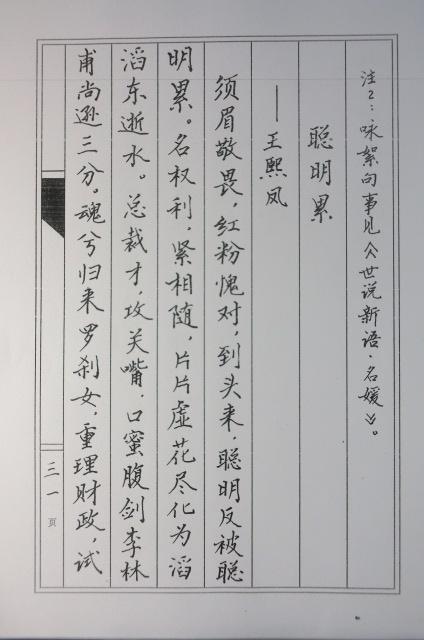 注2：咏絮句事见《世说新语·名媛》。
聪明累
——王熙凤
须眉敬畏，红粉愧对，到头来，聪明反被聪
明累。名权利，紧相随，片片虚花尽化为滔
滔东逝水。总裁才，攻关嘴，口蜜腹剑李林
甫尚逊三分。魂兮归来罗刹女，重理财政，试
三一页